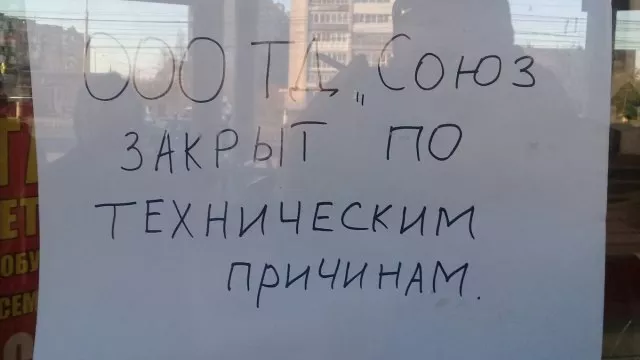 ООО ТД „Союз
ЗАКРЫТ ПО
ТЕХНИЧЕСКИМ
ПРИЧИНАМ.